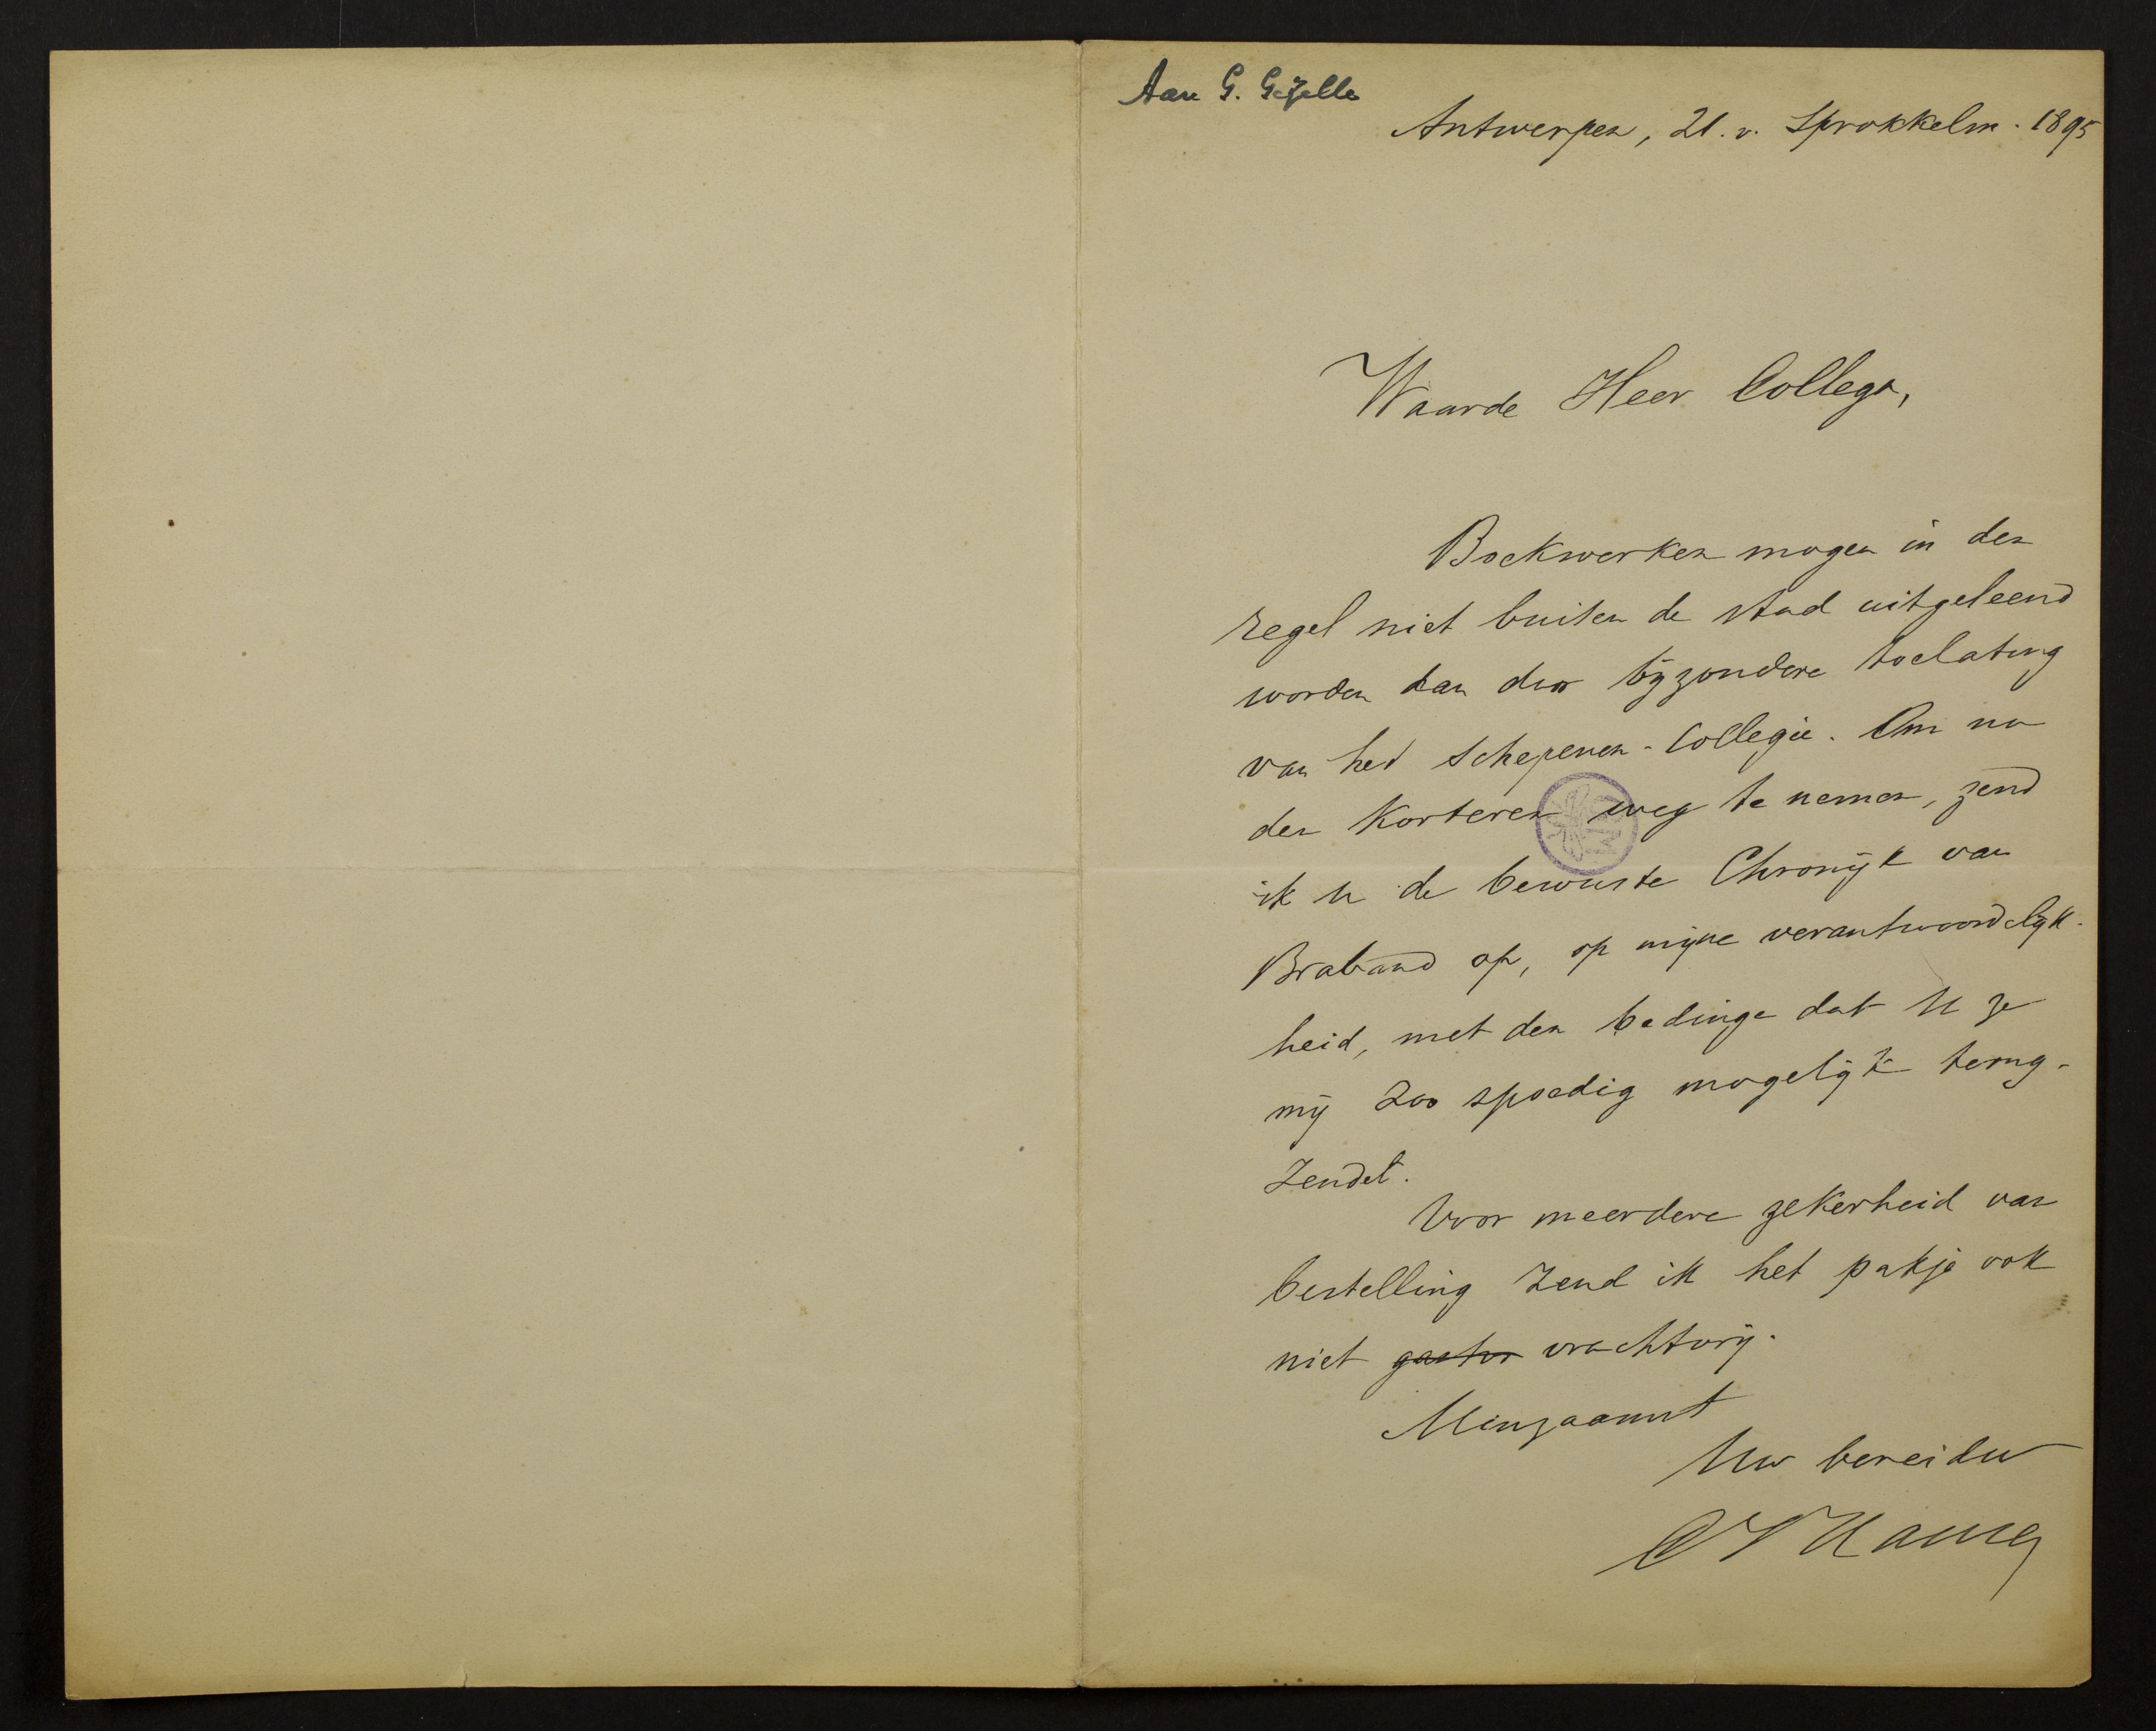 Aan G. Gezelle
Antwerpen, 21. v. Sprokkelm. 1895
Waarde Heer Collega,
Boekwerken mogen in den
regel niet buiten de stad uitgeleend
worden dan door bijzondere toelating
van het Schepenen-Collegie. Om nu
den korteren weg te nemen, zend
ik u de bewuste Chronijk van
Braband op, op mijne verantwoordelijk-
heid, met den bedinge dat U ze
mij zoo spoedig mogelijk terug-
zendet.
Voor meerdere zekerheid van
bestelling zend ik het pakje ook
niet vrachtvrij.
Minzaamst
Uw bereidw